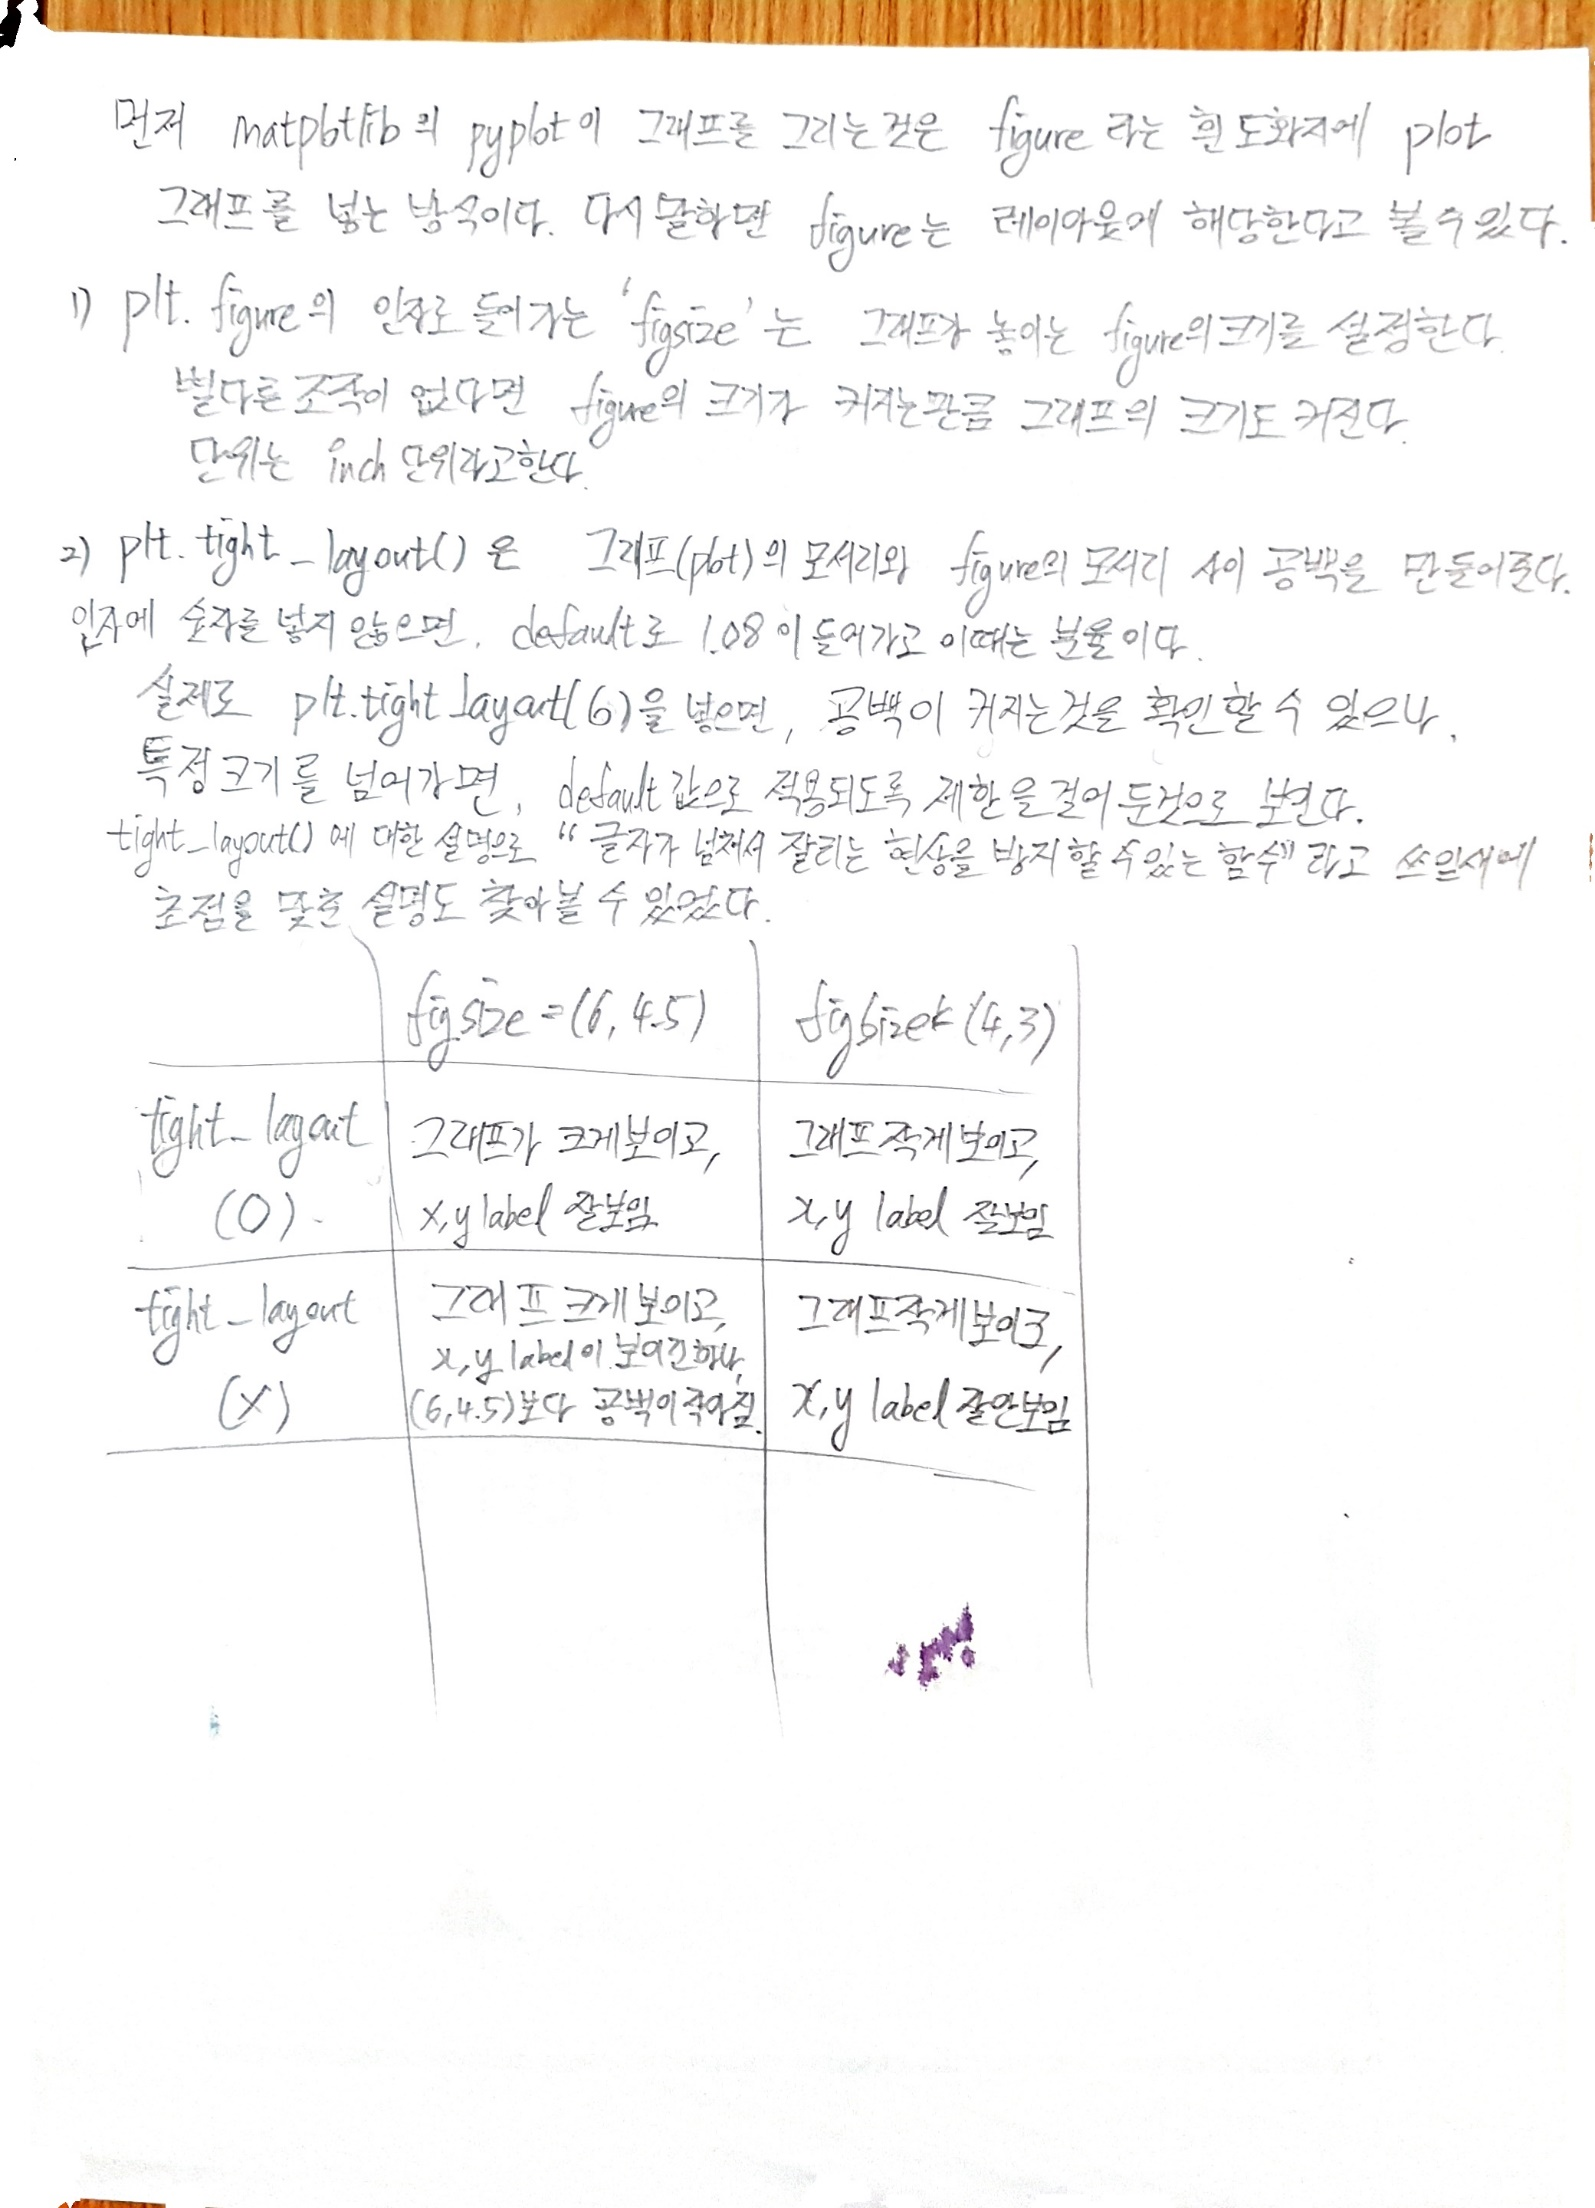 먼저 matplotlib의 pyplot이 그래프를 그리는것은 figure 라는 흰 도화지에 plot
그래프를 넣는 방식이다. 다시 말하면 figure는 레이아웃에 해당한다고 볼 수 있다.
1) plt. figure의 인자로 들어가는 'figsize'는 그래프가 놓이는 figure의 크기를 설정한다.
별다른 조작이 없다면 figure의 크기가 커지는만큼 그래프의 크기도 커진다.
단위는 inch 단위라고한다.
2) plt. tight_layout() 은 그래프(plot)의 모서리와 figure의 모서리 사이 공백을 만들어준다.
인자에 숫자를 넣지 않으면, default로 1.08이 들어가고 이때는 분율이다.
실제로 plt.tight_layout(6)을 넣으면, 공백이 커지는것을 확인할 수 있으나,
특정크기를 넘어가면, default값으로 적용되도록 제한을 걸어 둔것으로 보인다.
tight_layout() 에 대한 설명으로 "글자가 넘쳐서 잘리는 현상을 방지할 수 있는 함수" 라고 쓰임새에
초점을 맞춘 설명도 찾아볼 수 있었다.
figsize=(6, 4.5) figsize=(4,3)
tight_layout 그래프가 크게보이고, 그래프 작게보이고,
(O) x,y label 잘보임 x,y label 잘보임
tight_layout 그래프 크게 보이고, 그래프작게보이고,
x,y label이 보이긴하나,
(X) (6,4.5)보다 공백이 작아짐. x,y label 잘안보임